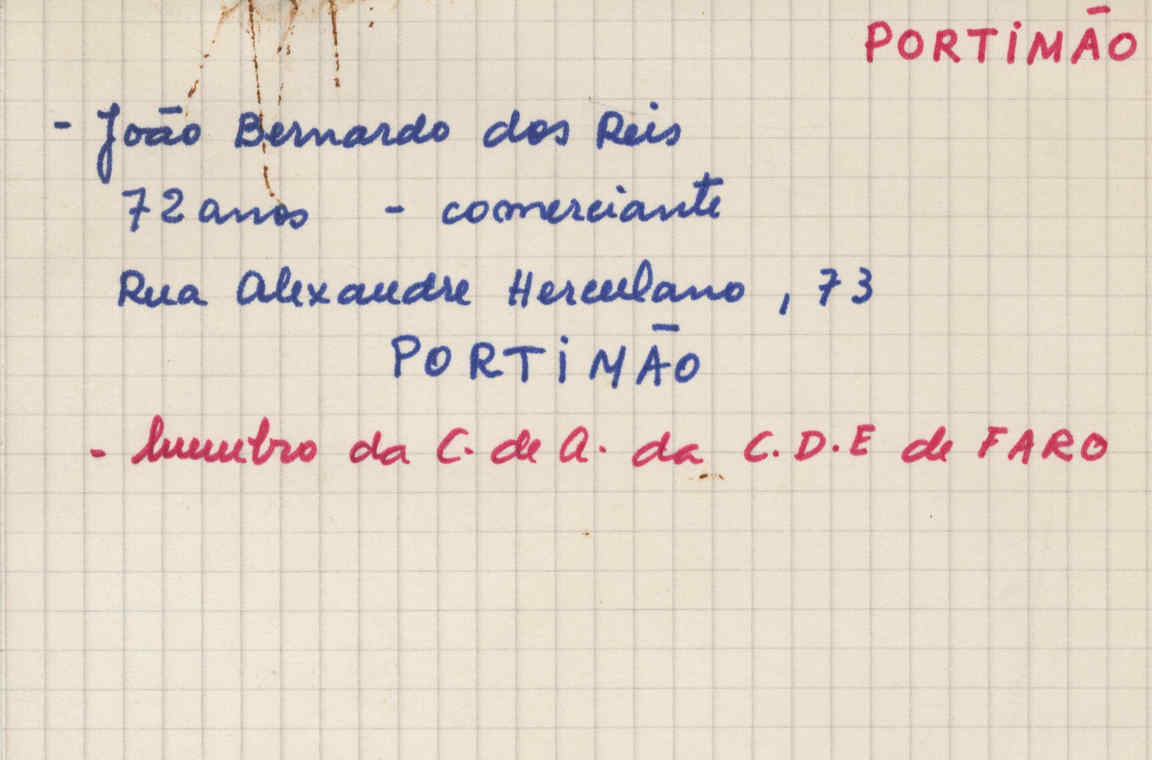 PORTIMÃO
- João Bernardo dos Reis
72 anos - comerciante
Rua Alexandre Herculano, 73
PORTIMÃO
- Membro da C. de A. da C.D.E de FARO